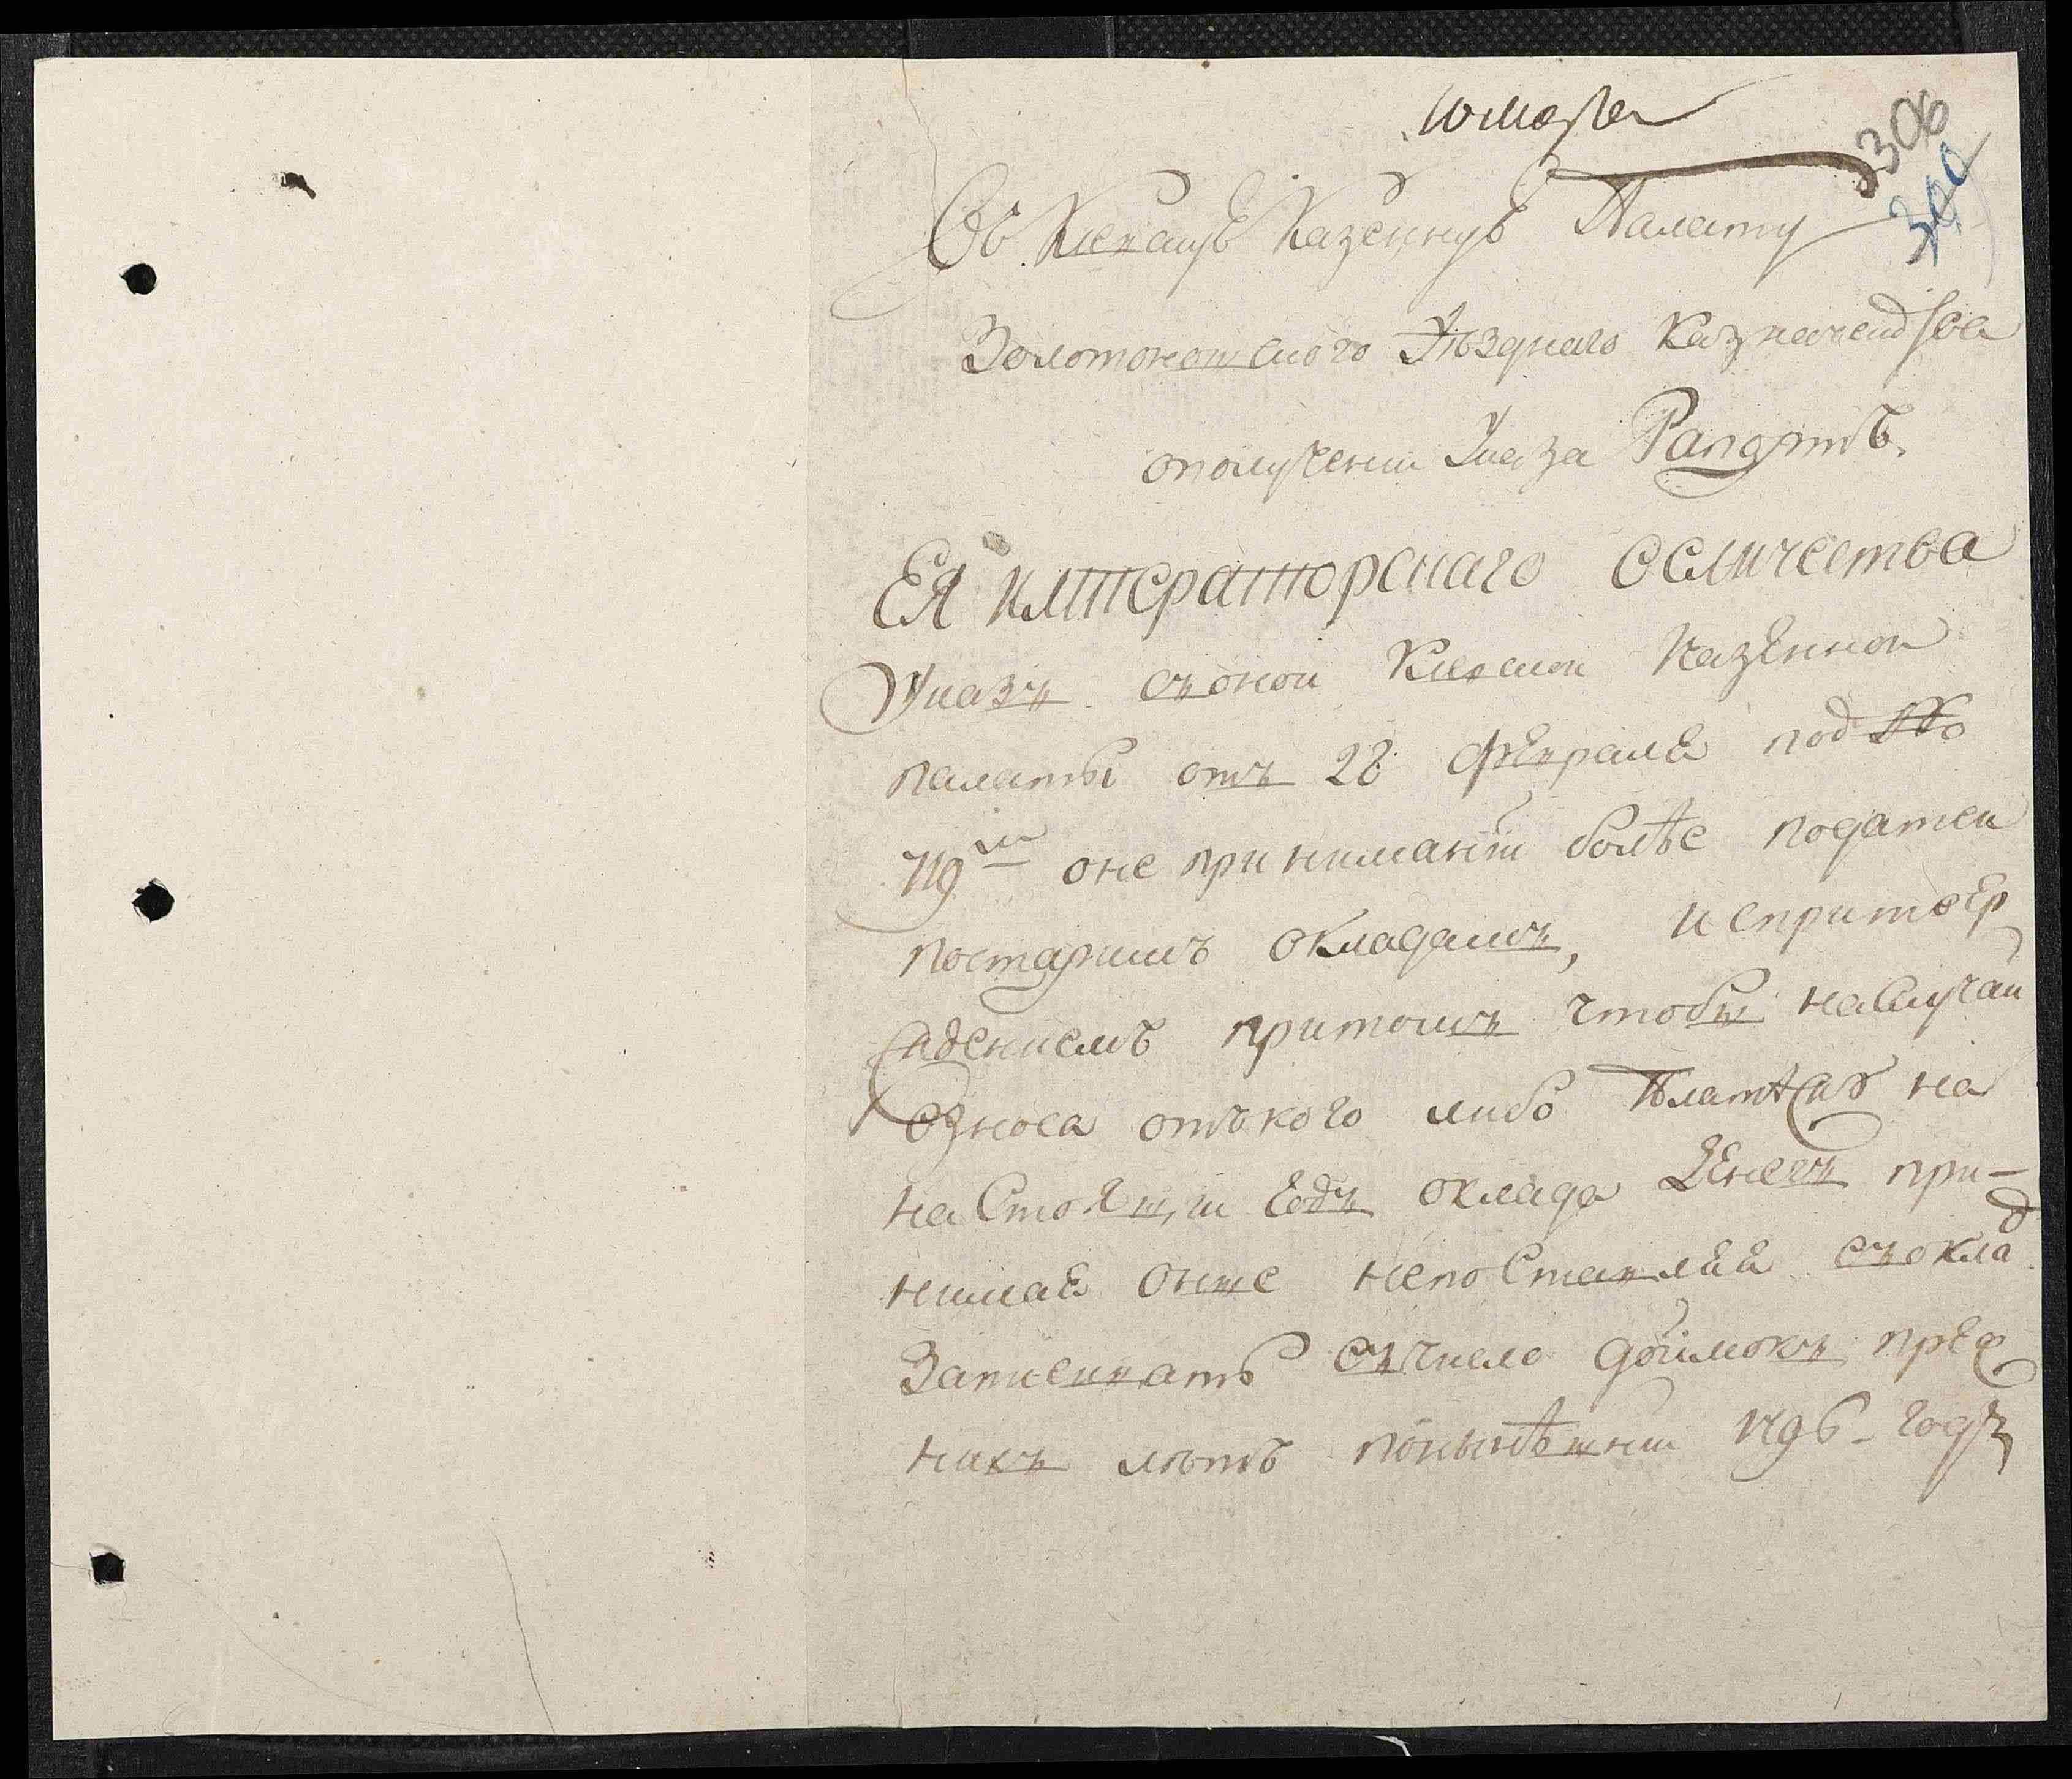 10 марта
306
300
Въ Киевскую Казенную Палату
Золотоношского Уѣзднаго Казначейства
ополученіи Указа Рапортъ.
ЕЯ Императорскаго величества
Указъ съоной Киевской Казенной
палаты отъ 28 февраля под №
719м оне приниманіи болѣе податей
постарымъ окладамъ, и спритвер
жденіемъ притомъ чтобы наслучай
взноса откого либо Платежа на
настоящій годъ оклада денегъ при-
нимая оные непоставляя въокла
записывать въчисло доимокъ преж
нихъ лѣтъ понынѣшній 1796 годъ